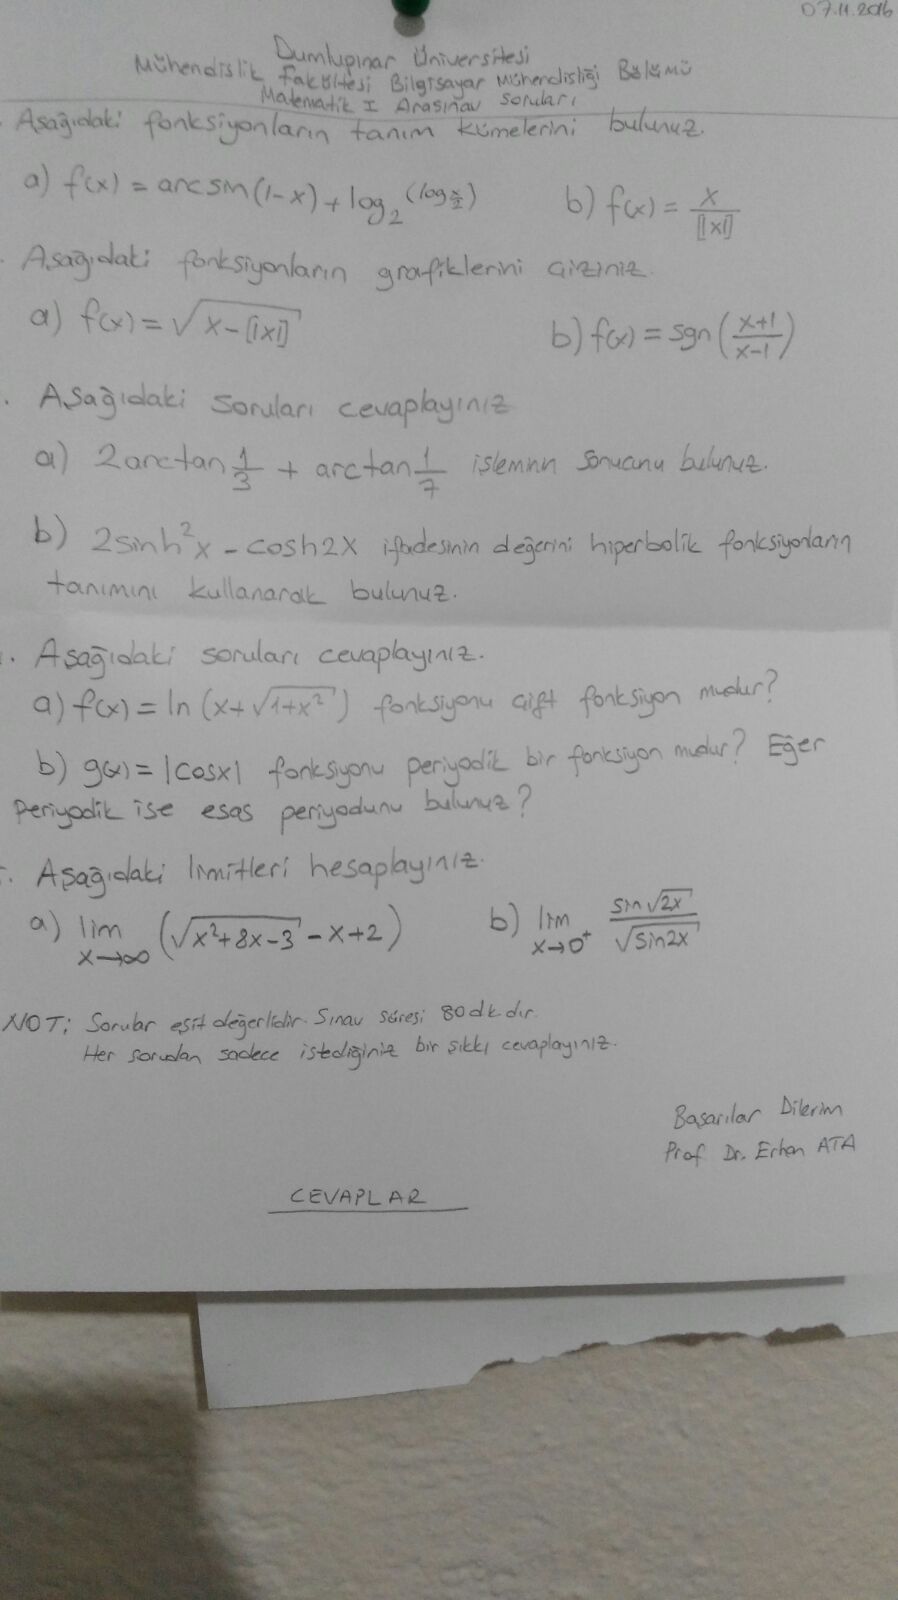 07.11.2016
Dumlupınar Üniversitesi
Mühendislik Fakültesi Bilgisayar Mühendisliği Bölümü
Matematik I Arasınav Soruları
Aşağıdaki fonksiyonların tanım kümelerini bulunuz.
a) f(x) = arcsin(1-x) + log₂(log x/2) b) f(x) = x/[|x|]
Aşağıdaki fonksiyonların grafiklerini çiziniz.
a) f(x) = √(x-[|x|]) b) f(x) = sgn((x+1)/(x-1))
. Aşağıdaki soruları cevaplayınız
a) 2arctan 1/3 + arctan 1/7 işleminin sonucunu bulunuz.
b) 2sinh²x - cosh2x ifadesinin değerini hiperbolik fonksiyonların
tanımını kullanarak bulunuz.
. Aşağıdaki soruları cevaplayınız.
a) f(x) = ln(x+√(1+x²)) fonksiyonu çift fonksiyon mudur?
b) g(x) = |cosx| fonksiyonu periyodik bir fonksiyon mudur? Eğer
periyodik ise esas periyodunu bulunuz?
. Aşağıdaki limitleri hesaplayınız.
a) lim x→∞ (√(x²+8x-3) - x+2) b) lim x→0⁺ sin√2x / √sin2x
NOT: Sorular eşit değerlidir. Sınav süresi 80 dk.dır.
Her sorudan sadece istediğiniz bir şıkkı cevaplayınız.
Başarılar Dilerim
Prof Dr. Erhan ATA
CEVAPLAR